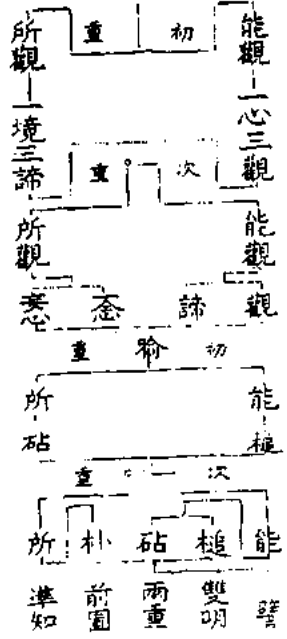 能觀 初重 所觀
一心三觀 一境三諦
次重
能觀 所觀
觀 諦
初喻重
能槌 所砧
次重
能 槌 砧 朴 所
譬 雙明 兩重 前圖 準知